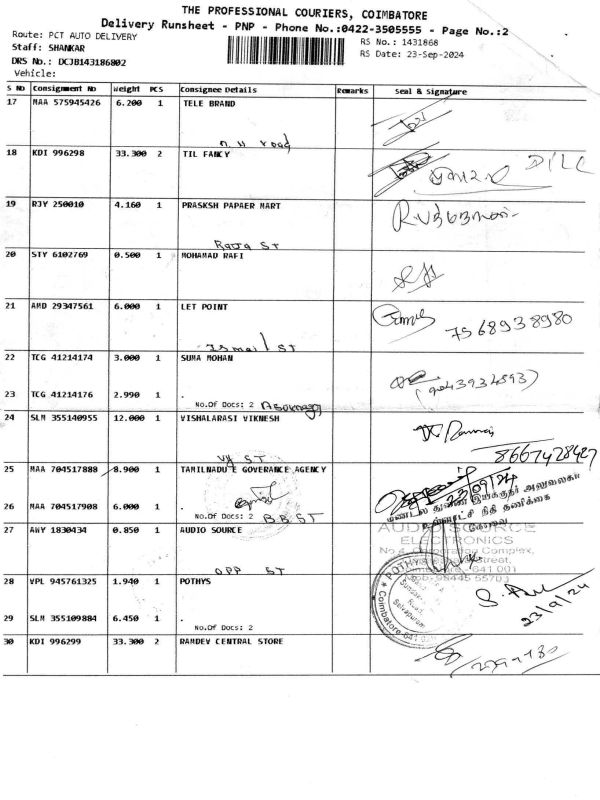 THE PROFESSIONAL COURIERS, COIMBATORE
Delivery Runsheet - PNP - Phone No.:0422-3505555 - Page No.:2
Route: PCT AUTO DELIVERY
Staff: SHANKAR
DRS No.: DCJB143186802
Vehicle:
RS No.: 1431868
RS Date: 23-Sep-2024
S No Consignment No Weight PCS Consignee Details Remarks Seal & Signature
17 MAA 575945426 6.200 1 TELE BRAND
n.h road
18 KDI 996298 33.300 2 TIL FANCY
19 RJY 250010 4.160 1 PRASKSH PAPAER MART
Raja St
20 STY 6102769 0.500 1 MOHAMAD RAFI
21 AMD 29347561 6.000 1 LET POINT
Ismail St
7568938980
22 TCG 41214174 3.000 1 SUMA MOHAN
23 TCG 41214176 2.990 1
No.Of Docs: 2
24 SLM 355140955 12.000 1 VISHALARASI VIKNESH
St
8667428427
25 MAA 704517888 8.900 1 TAMILNADU E GOVERANCE AGENCY
23/09/24
26 MAA 704517908 6.000 1
No.Of Docs: 2 BB St
மண்டல துணை இயக்குநர் அலுவலகம்
உள்ளாட்சி நிதி தணிக்கை
கோவை
27 AWY 1830434 0.850 1 AUDIO SOURCE
OPP St
AUDIO SOURCE
ELECTRONICS
No 4, Corporation Complex,
28 VPL 945761325 1.940 1 POTHYS
POTHYS
Coimbatore
23/9/24
29 SLM 355109884 6.450 1
No.Of Docs: 2
30 KDI 996299 33.300 2 RAMDEV CENTRAL STORE